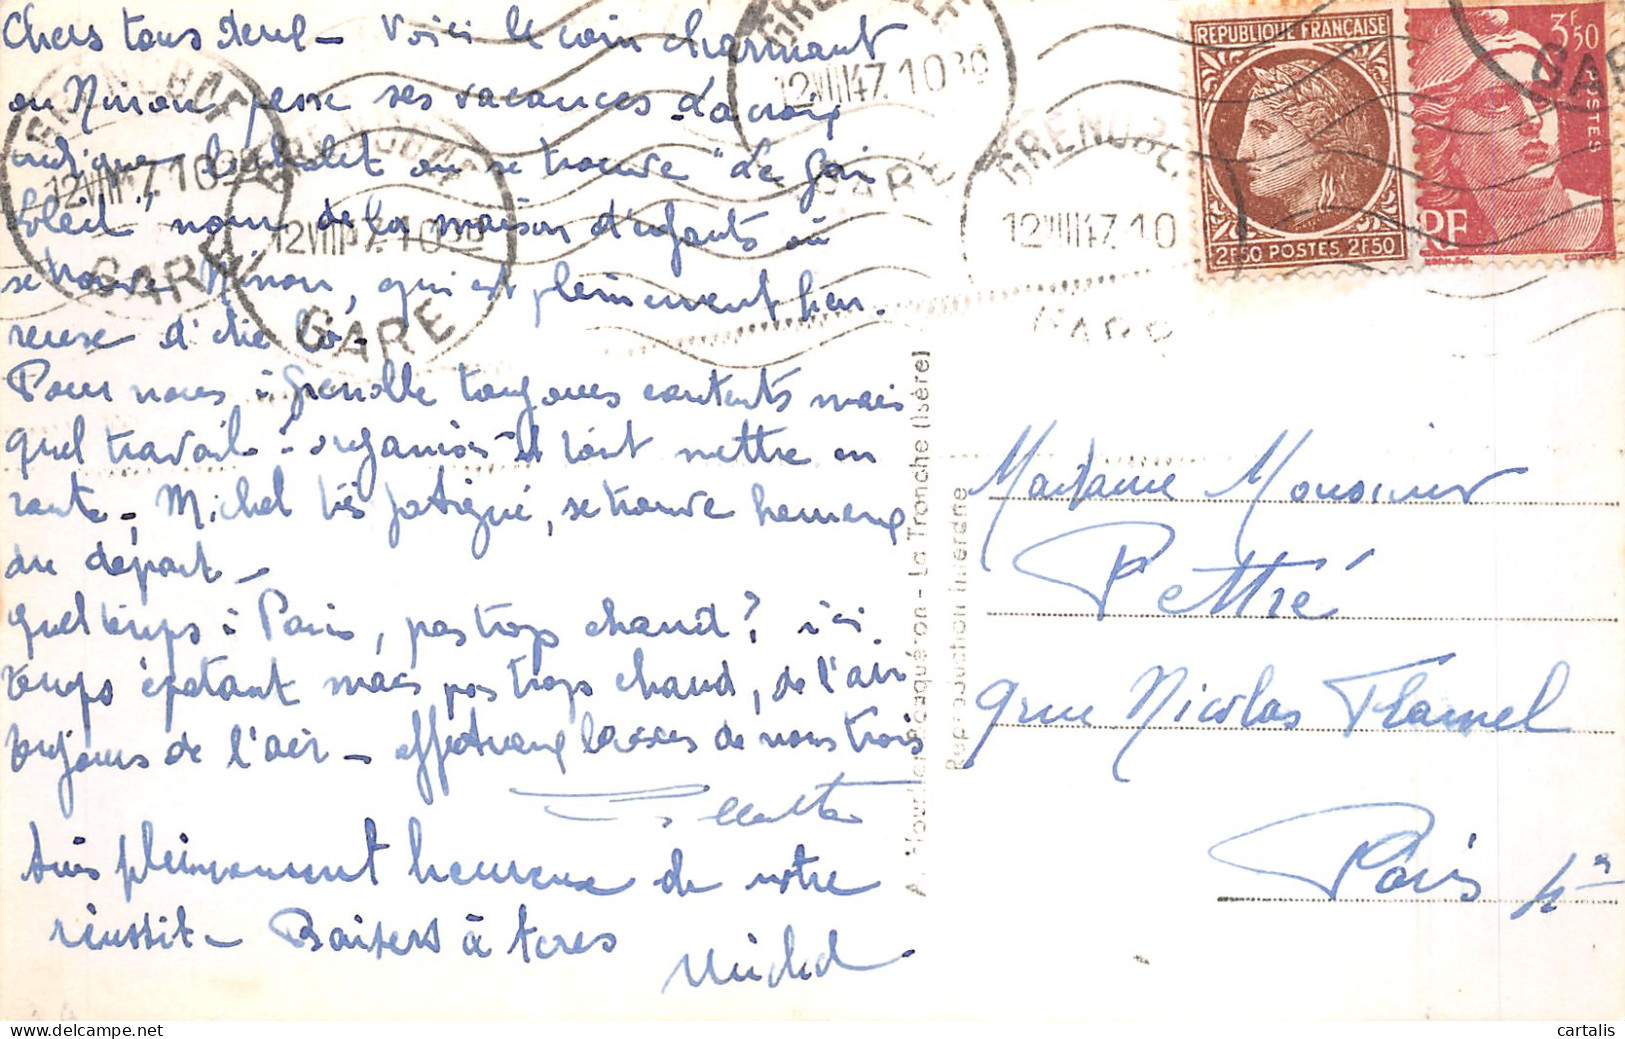 Chers tous deux - Voici le coin charmant
ou Ninon passe ses vacances - La croix
indique le chalet ou se trouve "Le Gai
Soleil" nom de la maison d'enfants où
se trouve Ninon, qui est pleinement heu.
reuse d'être là -
Pour nous à Grenoble toujours contents mais
quel travail à organiser et tout mettre en
route -, Michel très fatigué, se trouve heureux
du départ -
quel temps à Paris, pas trop chaud? ici.
temps épatant mais pas trop chaud, de l'air
toujours de l'air - affectueux baisers de nous trois
Suis pleinement heureux de notre
réussite - Baisers à tous
Michel
GRENOBLE
12 VIII 47. 10 30
GARE
GRENOBLE
12 VIII 47. 10 30
GARE
GRENOBLE
12 VIII 47. 10 30
GARE
GRENOBLE
12 VIII 47. 10
GARE
GARE
REPUBLIQUE FRANÇAISE
2F50 POSTES 2F50
3F50
POSTES
RF
A. Mourlencaquéron - La Tronche (Isère)
Reproduction interdite
Madame Monsieur
Pettré
9 rue Nicolas Flamel
Paris 4e
cartalis